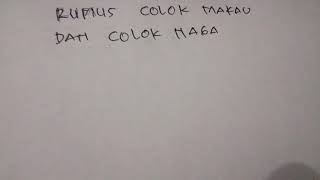 RUMUS COLOK MAKAU
DAN COLOK NAGA